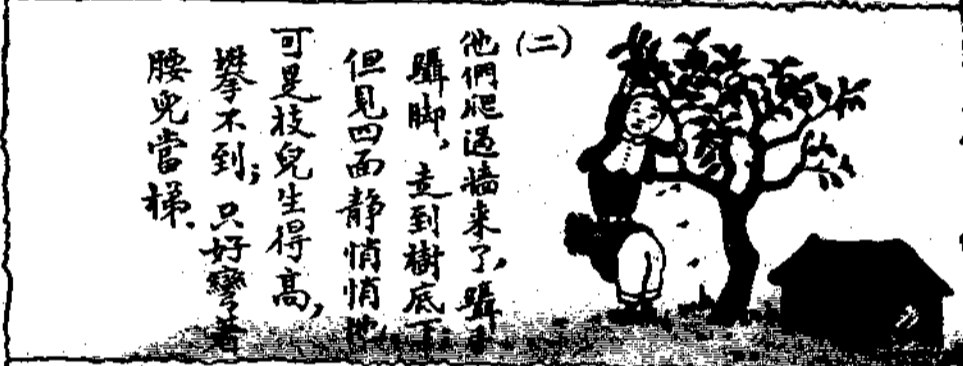 (二)
他們爬過墙来了,躡手
躡脚,走到樹底下
但見四面静悄悄地
可是枝兒生得高,
攀不到;只好彎着
腰兒當梯.